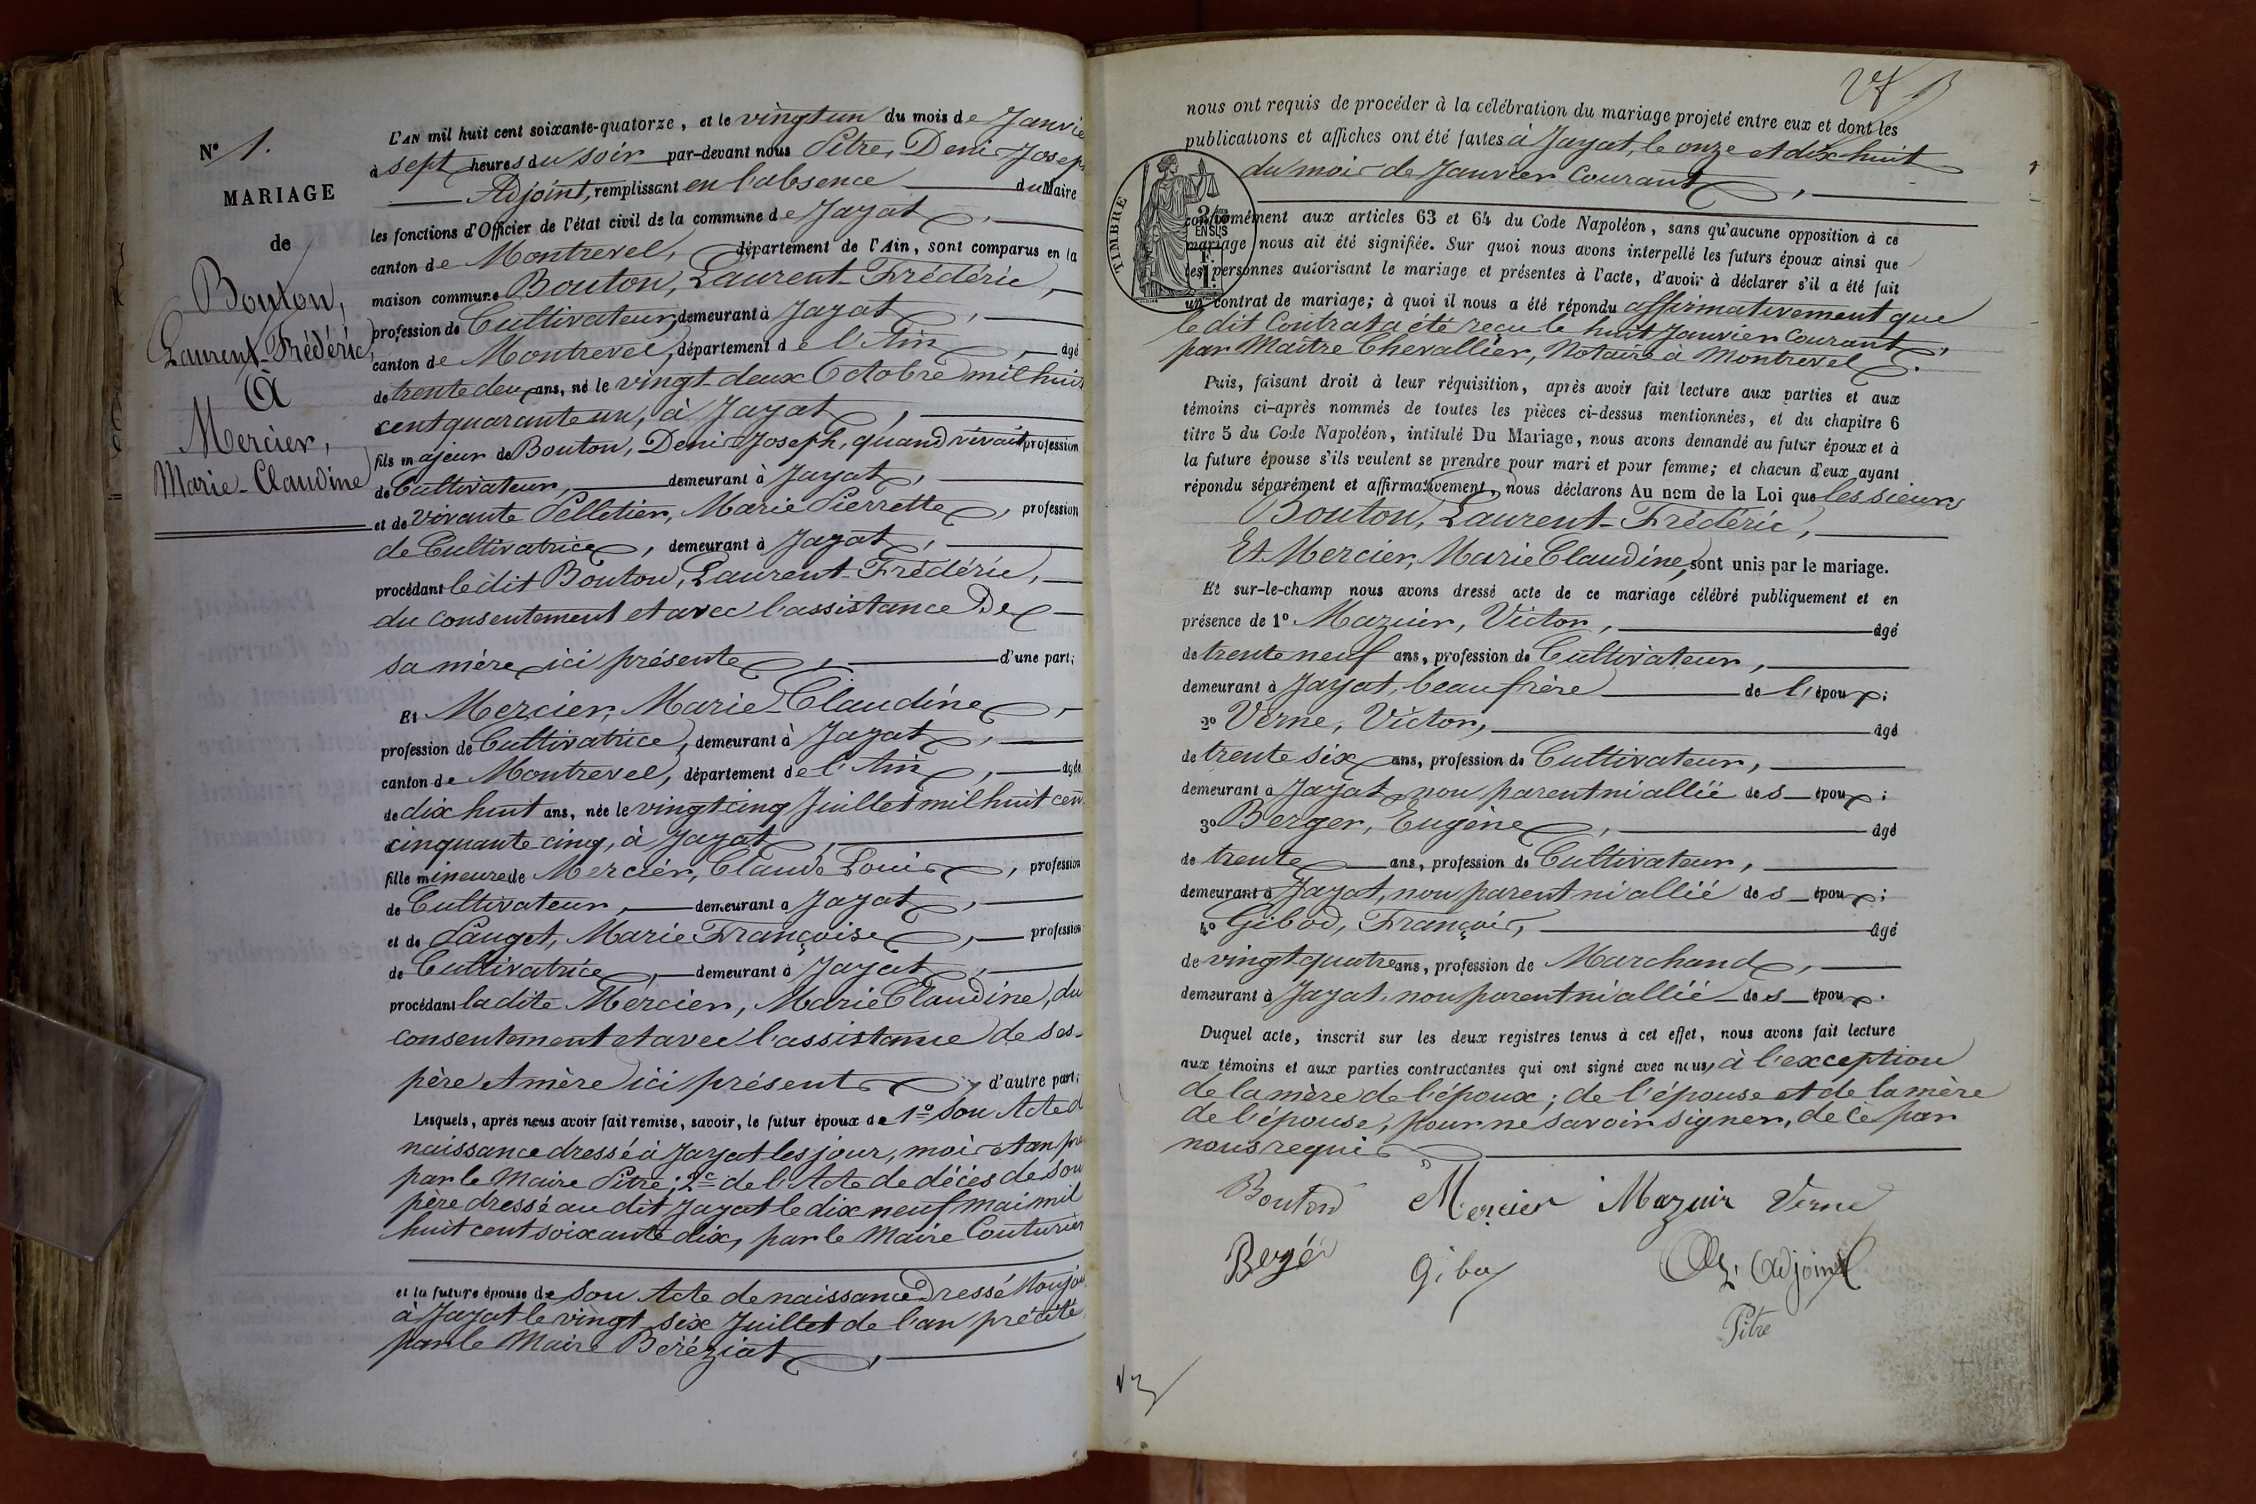 N° 1.
MARIAGE
de
Bouton,
Laurent-Frédéric,
À
Mercier,
Marie-Claudine
L'AN mil huit cent soixante-quatorze, et le vingt un du mois de Janvie
à sept heures du soir par-devant nous Pitre, Denis Josep
Adjoint, remplissant en l'absence du Maire
les fonctions d'Officier de l'état civil de la commune de Jayat,
canton de Montrevel, département de l'Ain, sont comparus en la
maison commune Bouton, Laurent-Frédéric,
profession de Cultivateur, demeurant à Jayat,
canton de Montrevel, département de l'Ain, âgé
de trente deux ans, né le vingt-deux Octobre mil huit
cent quarante un, à Jayat,
fils majeur de Bouton, Denis Joseph, quand vivait profession
de Cultivateur, demeurant à Jayat,
et de vivante Pelletier, Marie Pierrette, profession
de Cultivatrice, demeurant à Jayat,
procédant le dit Bouton, Laurent-Frédéric,
du consentement et avec l'assistance De
sa mère ici présente, d'une part;
Et Mercier, Marie-Claudine,
profession de Cultivatrice, demeurant à Jayat,
canton de Montrevel, département de l'Ain, âgée
de dix huit ans, née le vingt cinq Juillet mil huit cen
cinquante-cinq, à Jayat,
fille mineure de Mercier, Claude Louis, profession
de Cultivateur, demeurant à Jayat,
et de Pauget, Marie Françoise, profession
de Cultivatrice, demeurant à Jayat,
procédant la dite Mercier, Marie Claudine, du
consentement et avec l'assistance de ses
père et mère ici présents, d'autre part;
Lesquels, après nous avoir fait remise, savoir, le futur époux de 1° Son Acte d
naissance dressé à Jayat les jour, mois et an pré
par le Maire Pitre; 2° de l'Acte de décès de son
père dressé au dit Jayat le dix neuf mai mil
huit cent soixante dix, par le Maire Couturier
et la future épouse de Son Acte de naissance Dressé
à Jayat le vingt six Juillet de l'an précité
par le Maire Béréziat,
nous ont requis de procéder à la célébration du mariage projeté entre eux et dont les
publications et affiches ont été faites à Jayat, le onze et dix-huit
du mois de Janvier Courant,
TIMBRE
EN SUS
conformément aux articles 63 et 64 du Code Napoléon, sans qu'aucune opposition à ce
mariage nous ait été signifiée. Sur quoi nous avons interpellé les futurs époux ainsi que
les personnes autorisant le mariage et présentes à l'acte, d'avoir à déclarer s'il a été fait
un contrat de mariage; à quoi il nous a été répondu affirmativement que
le dit Contrat a été reçu le huit Janvier courant,
par Maître Chevallier, Notaire à Montrevel.
Puis, faisant droit à leur réquisition, après avoir fait lecture aux parties et aux
témoins ci-après nommés de toutes les pièces ci-dessus mentionnées, et du chapitre 6
titre 5 du Code Napoléon, intitulé Du Mariage, nous avons demandé au futur époux et à
la future épouse s'ils veulent se prendre pour mari et pour femme; et chacun d'eux ayant
répondu séparément et affirmativement, nous déclarons Au nom de la Loi que les sieurs
Bouton, Laurent-Frédéric,
Et Mercier, Marie Claudine, sont unis par le mariage.
Et sur-le-champ nous avons dressé acte de ce mariage célébré publiquement et en
présence de 1° Mazuir, Victor, âgé
de trente neuf ans, profession de Cultivateur,
demeurant à Jayat, beau frère de l'époux;
2° Verne, Victor, âgé
de trente six ans, profession de Cultivateur,
demeurant à Jayat, non parent ni allié des époux;
3° Berger, Eugène, âgé
de trente ans, profession de Cultivateur,
demeurant à Jayat, non parent ni allié des époux;
4° Gibod, François, âgé
de vingt quatre ans, profession de Marchand,
demeurant à Jayat, non parent ni allié des époux.
Duquel acte, inscrit sur les deux registres tenus à cet effet, nous avons fait lecture
aux témoins et aux parties contractantes qui ont signé avec nous, à l'exception
de la mère de l'époux; de l'épouse et de la mère
de l'épouse, pour ne savoir signer, de ce par
nous requis
Bouton Mercier Mazuir Verne
Bergé Adjoint
Pitre